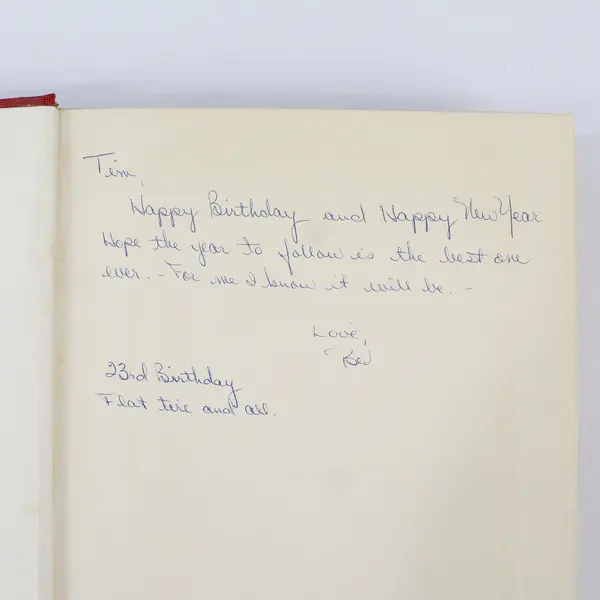 Tim,
Happy Birthday and Happy New Year
Hope the year to follow is the best one
ever. - For me I know it will be. -
Love,
Bev
23rd Birthday
Flat tire and all.